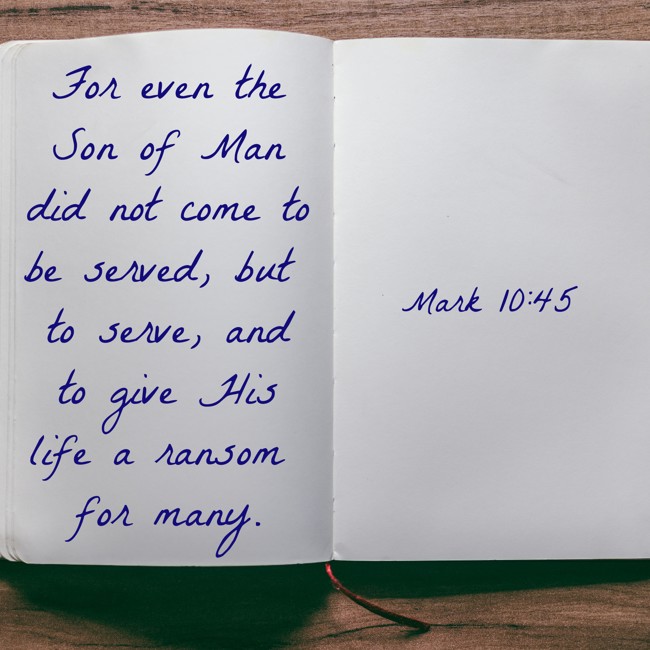 For even the
Son of Man
did not come to
be served, but
to serve, and
to give His
life a ransom
for many.
Mark 10:45